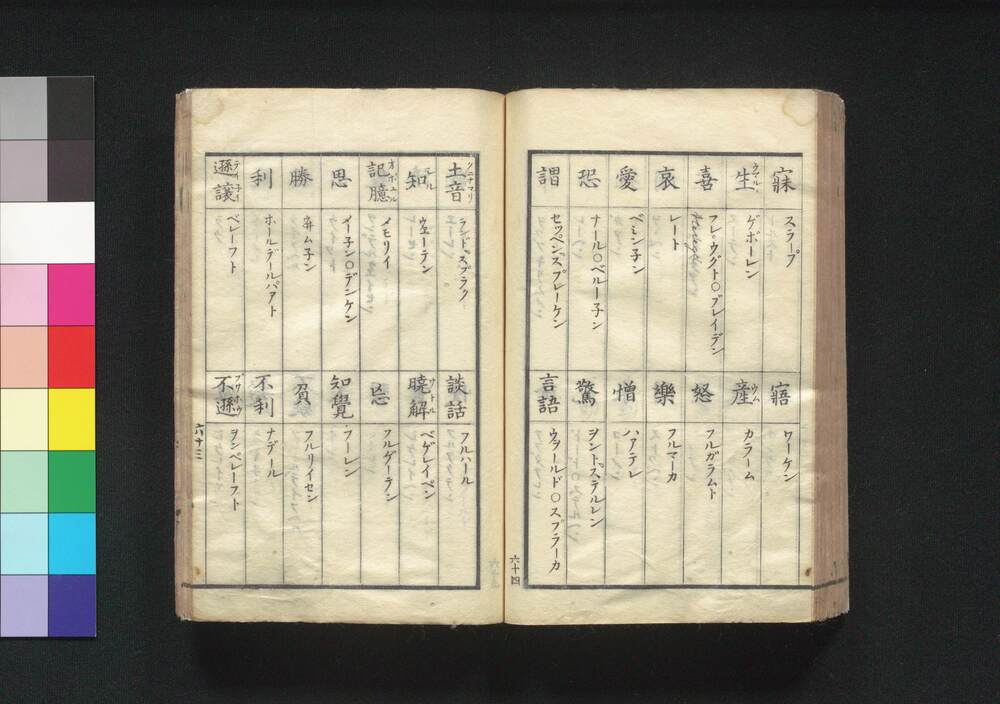 寐 スラープ
寤 ワーケン
生 ウマルヽ ゲボーレン
産 ウム カラーム
喜 フレウグト○ブレイデン
怒 フルガラムト
哀 レート
樂 フルマーカ
愛 ベミン子ン
憎 ハアテレ
恐 ナール○ベルー子ン
驚 ヲントステルレン
謂 セッペンスプレーケン
言語 ウァールド○スプラーカ
六十四
土音 クニナマリ ランドスプラク
談話 フルハール
知 シル ウェーテン
曉解 サトル ベゲレイペン
記臆 オボエル メモリイ
忘 フルゲーテン
思 イー子ン○デンケン
知覺 フーレン
勝 井ム子ン
負 フルリイセン
利 ホールデールパアト
不利 ナデール
遜讓 ベレーフト
不遜 ブサホウ ヲンベレーフト
六十三